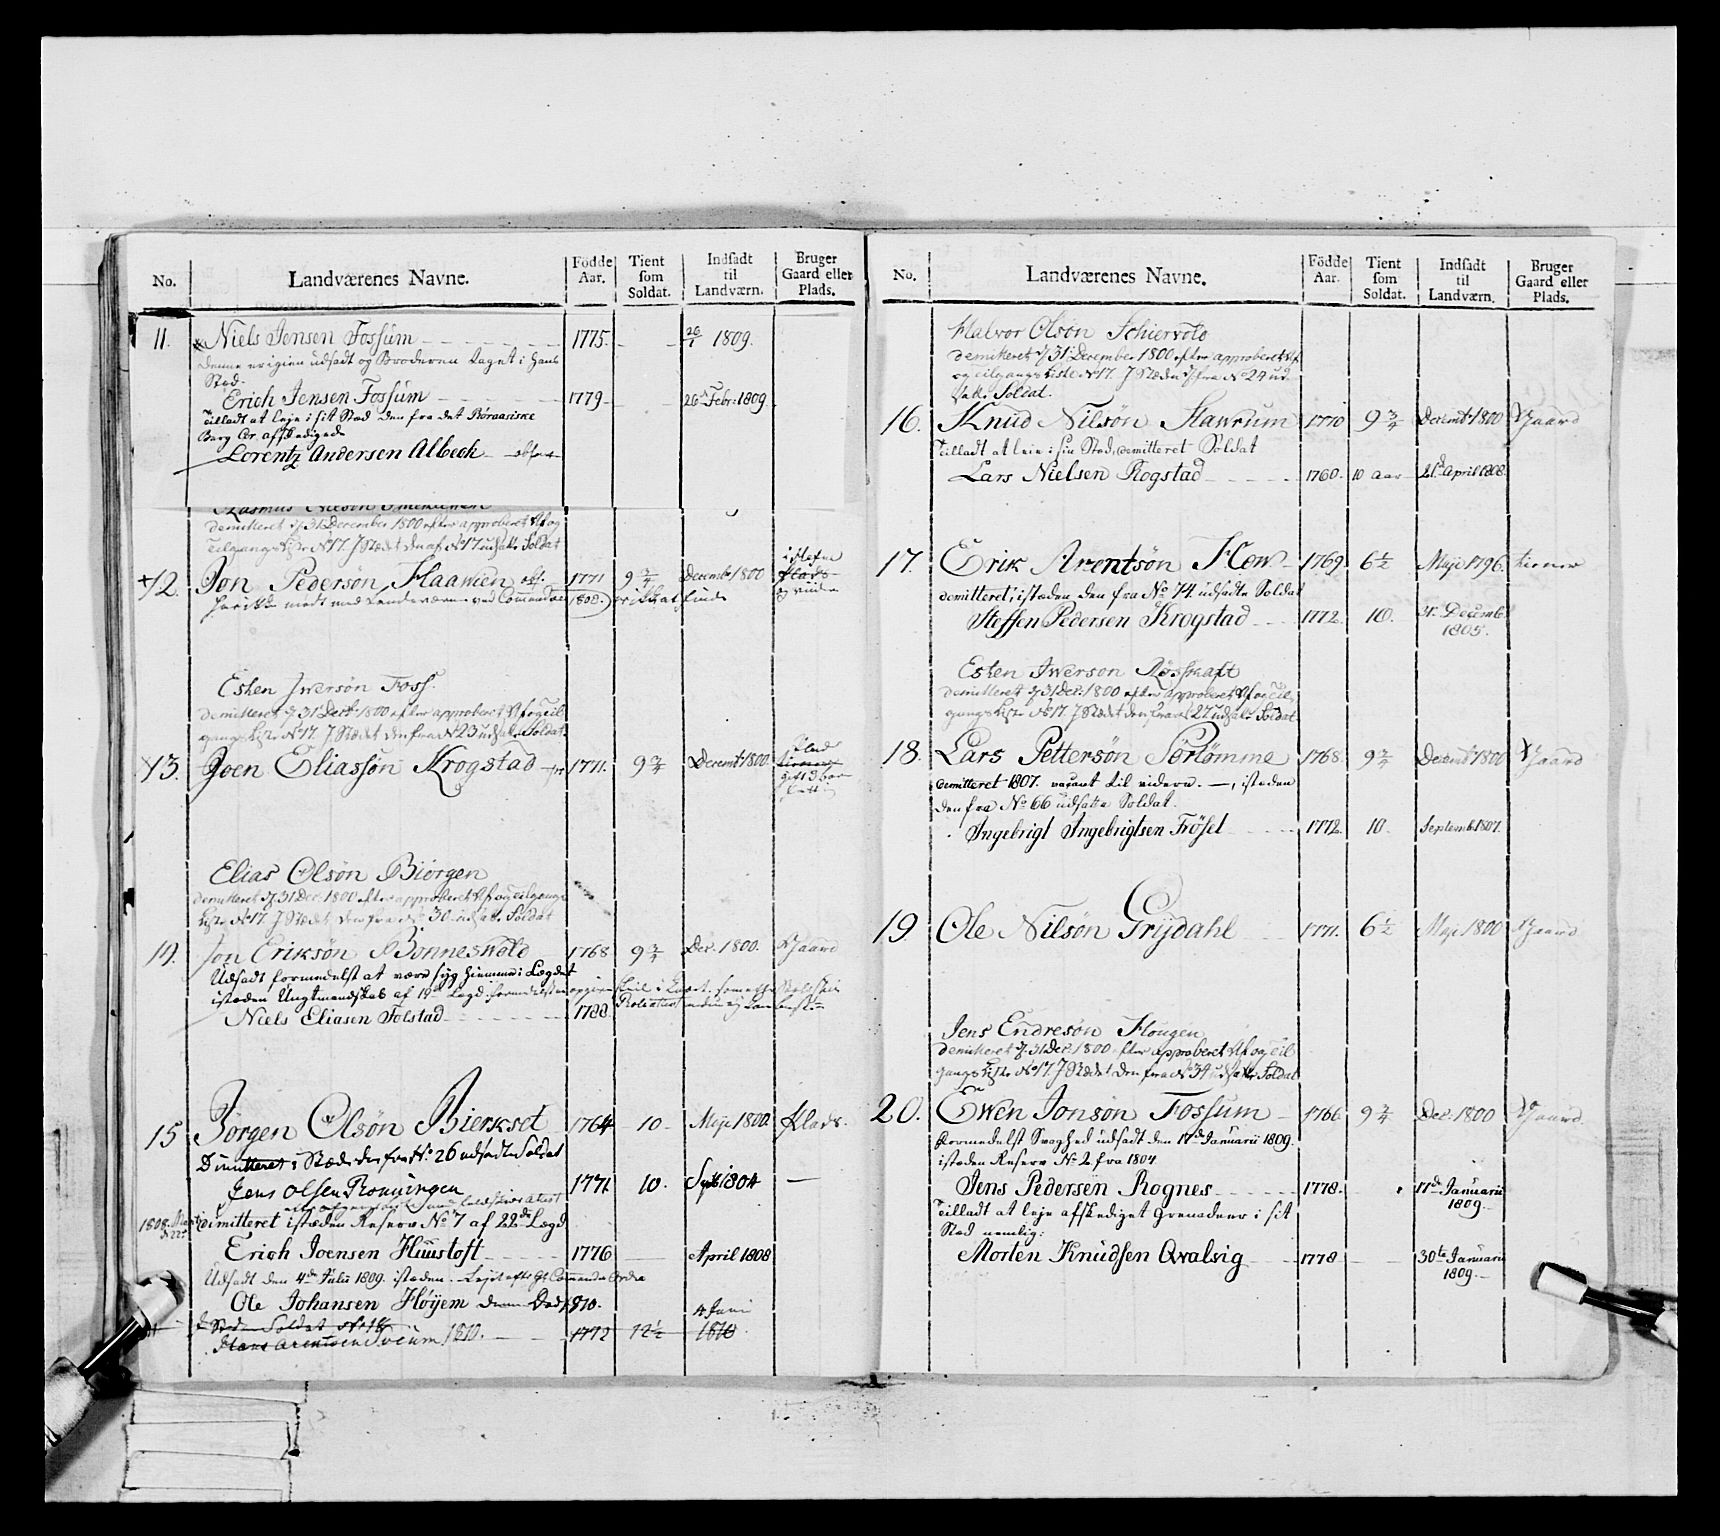 No. Landværenes Navne. Fødde Aar. Tient som Soldat. Indsadt til Landværn. Bruger Gaard eller Plads.
11. Niels Jensen Fossum 1775. 26/1 1809.
Denne er igien udsadt og Broderen taget i hans
Stæd.
Erich Jensen Fossum 1779 26 Febr: 1809
Tilladt at leje i sit Stæd den fra det Røraasiske
Berg Cor. afskedigede
Lorentz Andersen Albeck
Rasmus Nilsøn
demitteret d/31 December 1800 efter approberet Af og
Tilgangs Liste No 17. J Stædet den af No 17 udsatte Soldat
12. Jon Pedersøn Flaamen 1771 9 3/4 Decembr 1800 Plads
1808.
Esten Iversøn Foss.
demitteret d/31 Decb: 1800 efter approberet Af og Til
gangs Liste No 17. J Stædet den fra No 23 udsatte Soldat.
13. Joen Eliassøn Krogstad 1771. 9 3/4 Decembr 1800.
Elias Olsøn Biørgen
demitteret d/31 Dec: 1800 efter approberet Af og Tilgangs
Liste No 17. J Stædet den fra No 30 udsatte Soldat
14. Jon Eriksøn Bonneswold 1768 9 3/4 Dec. 1800. Gaard
Udsadt formedelst at være syg hiemme i Lægdet
istæden Ungtmandskab af 19de Lægd
Niels Eliasen Folstad 1788
15 Jørgen Olsøn Bierkset 1764 10 Maji 1800. Plads.
Dimitteret i Stæd den fra No. 26 udsadte Soldat
Jens Olsen Ronningen 1771 10. Sept 1804 —
1808
dimitteret istæden Reserv No 7 af 22de Lægd
Erich Joensen Huustoft 1776 April 1808
Udsadt den 4de Julii 1809. istæden
Ole Johansen Høyem 1810. 4 Juni
Soldat No 18
Hans Arentsen 1810. 1772 12 1/2 1810
No. Landværenes Navne. Fødde Aar. Tient som Soldat. Indsadt til Landværn. Bruger Gaard eller Plads.
Halvor Olsøn Schiervold
demitteret d/31 December 1800 efter approberet Af
og Tilgangs Liste No 17. J Stædet d. fra No 24 ud
satte Soldat.
16. Knud Nilsøn Hawrum 1770 9 3/4 Decembr 1800 Gaard
Tilladt at leie i sin Stæd, demitteret Soldat
Lars Nielsen Rogstad 1760. 10 Aar 21de April 1808
17. Erik Arentsøn How 1769. 6 1/2 Maji 1796. tiener
demitteret, istæden den fra No 74. udsadte Soldat
Steffen Pedersen Krogstad 1772. 10. 31. Decemb.
1805.
Esten Iwersøn Røsskaft
demitteret d/31 Dec: 1800 efter approberet Af og Til
gangs Liste No 17. J Stædet den fra No 27 udsatte Soldat
18. Lars Pettersøn Sørtømme 1768. 9 3/4 Decembr 1800 Gaard
demitteret 1807. vacant til videre. —, istæden
den fra No 66 udsatte Soldat.
Ingebrigt Ingebrigtsen Frøset 1772. 10. Septemb: 1807.
19 Ole Nilsøn Grijdahl 1771. 6 1/2 Maji 1800 Gaard
Jens Endresøn Hougen
demitteret d. 31 Dec. 1800 efter approberet Af og Til
gangs Liste No 17. J Stædet den fra No 34 udsatte Soldat
20. Ewen Jonsøn Fossum 1766. 9 3/4 Dec. 1800 Gaard.
formedelst Svaghed udsadt den 17de Januarii 1809.
istæden Reserv No 2 fra 1804
Jens Pedersen Rognes 1778. 17de Januarii
1809.
Tilladt at leje afskediget Grenadeer i sit
Stæd nemlig:
Morten Knudsen Qvalsvig 1778 30te Januarii
1809.